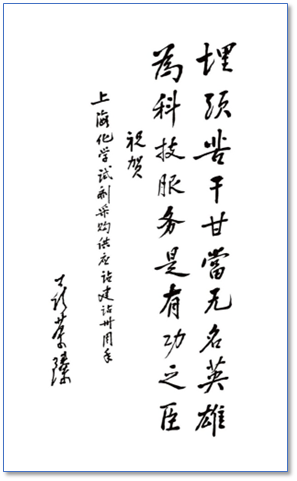 埋頭苦干甘當无名英雄
為科技服务是有功之臣
祝贺
上海化学试剂采购供应站建站卅周年